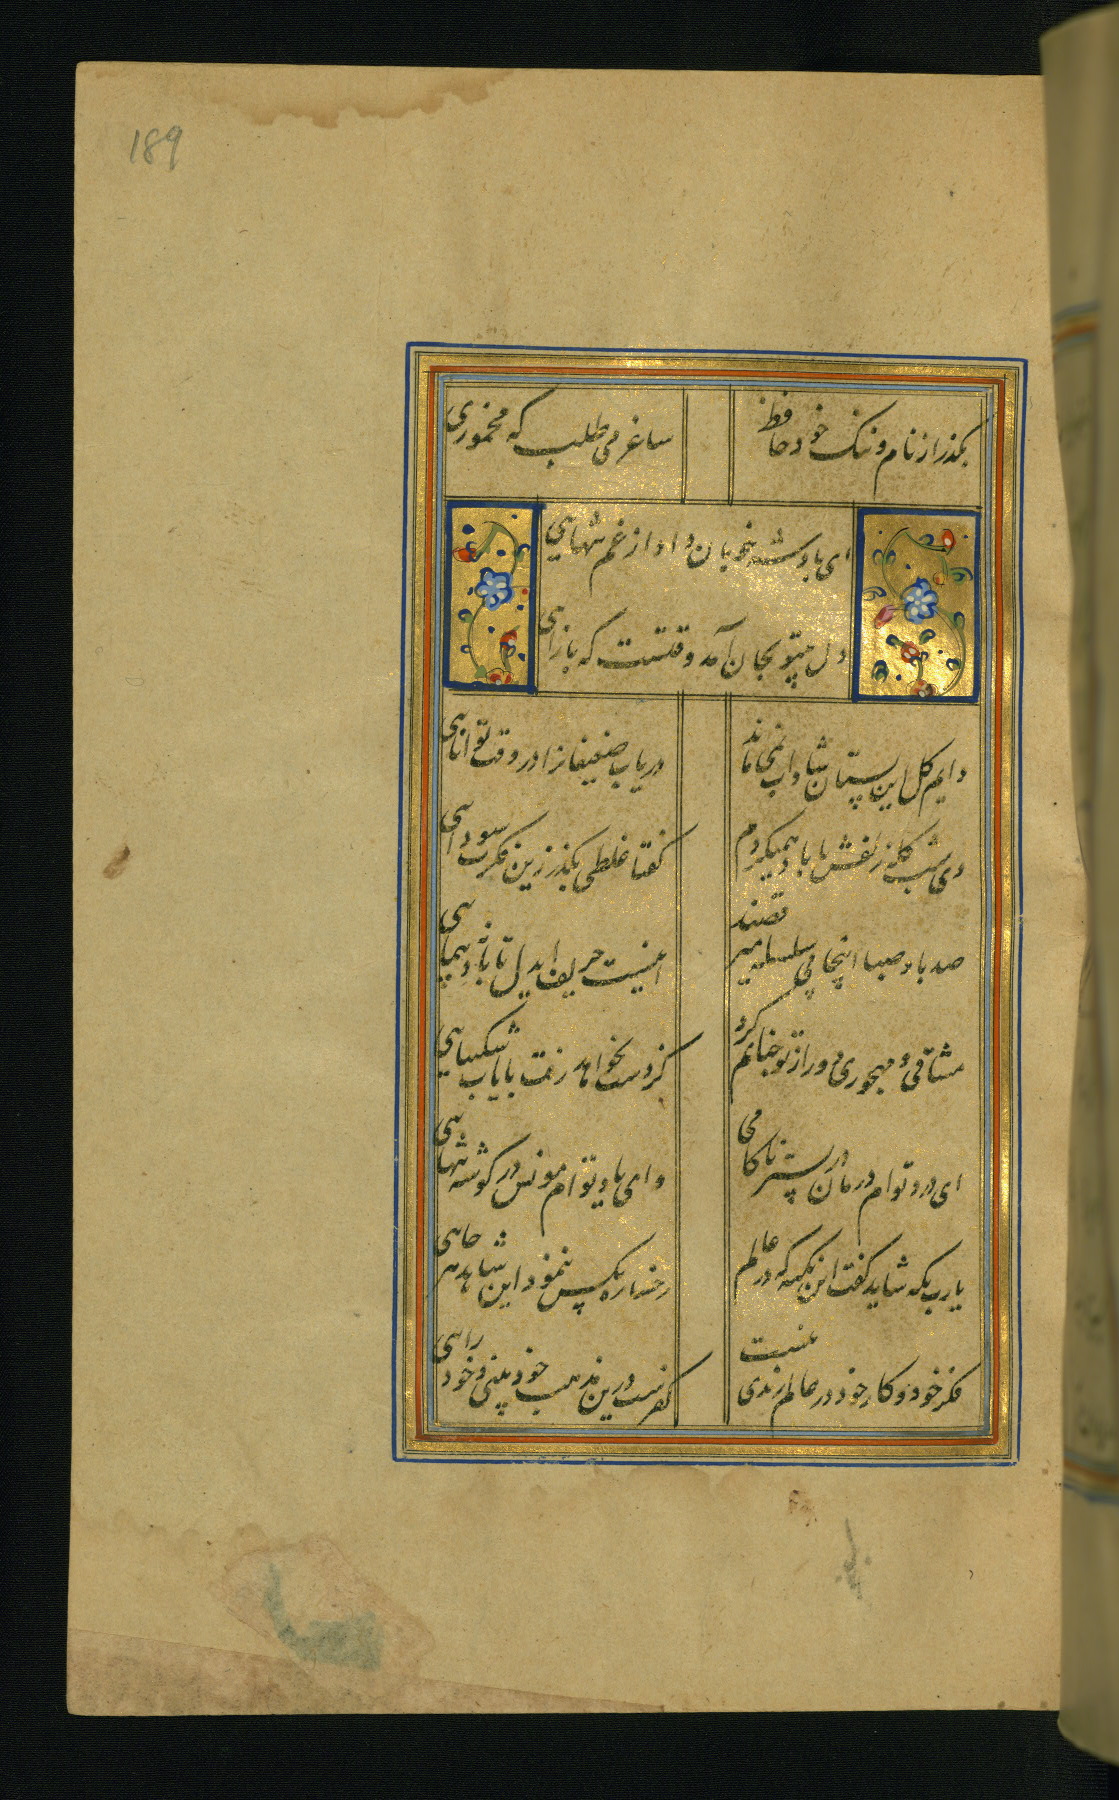 189
بگذر از نام و ننگ خود حافظ
ساغر می طلب که مخموری
ای پادشه خوبان داد از غم تنهایی
دل بیتو بجان آمد وقتست که بازایی
دایم گل این بستان شاداب نمیماند
دریاب ضعیفانرا در وقت توانایی
دی شب گله زلفش با باد همیکردم
گفتا غلطی بگذر زین فکرت سودایی
صد باد صبا اینجا با سلسله میرقصند
اینست حریف ایدل تا باد نپیمایی
مشتاقی و مهجوری دور از تو چنانم کرد
کز دست بخواهد رفت پایاب شکیبایی
ای درد توام درمان در بستر ناکامی
وای یاد توام مونس در گوشه تنهایی
یارب بکه شاید گفت این نکته که در عالم
رخساره بکس ننمود این شاهد هر جایی
فکر خود و کار خود در عالم رندی نیست
کفرست درین مذهب خود بینی و خود رایی